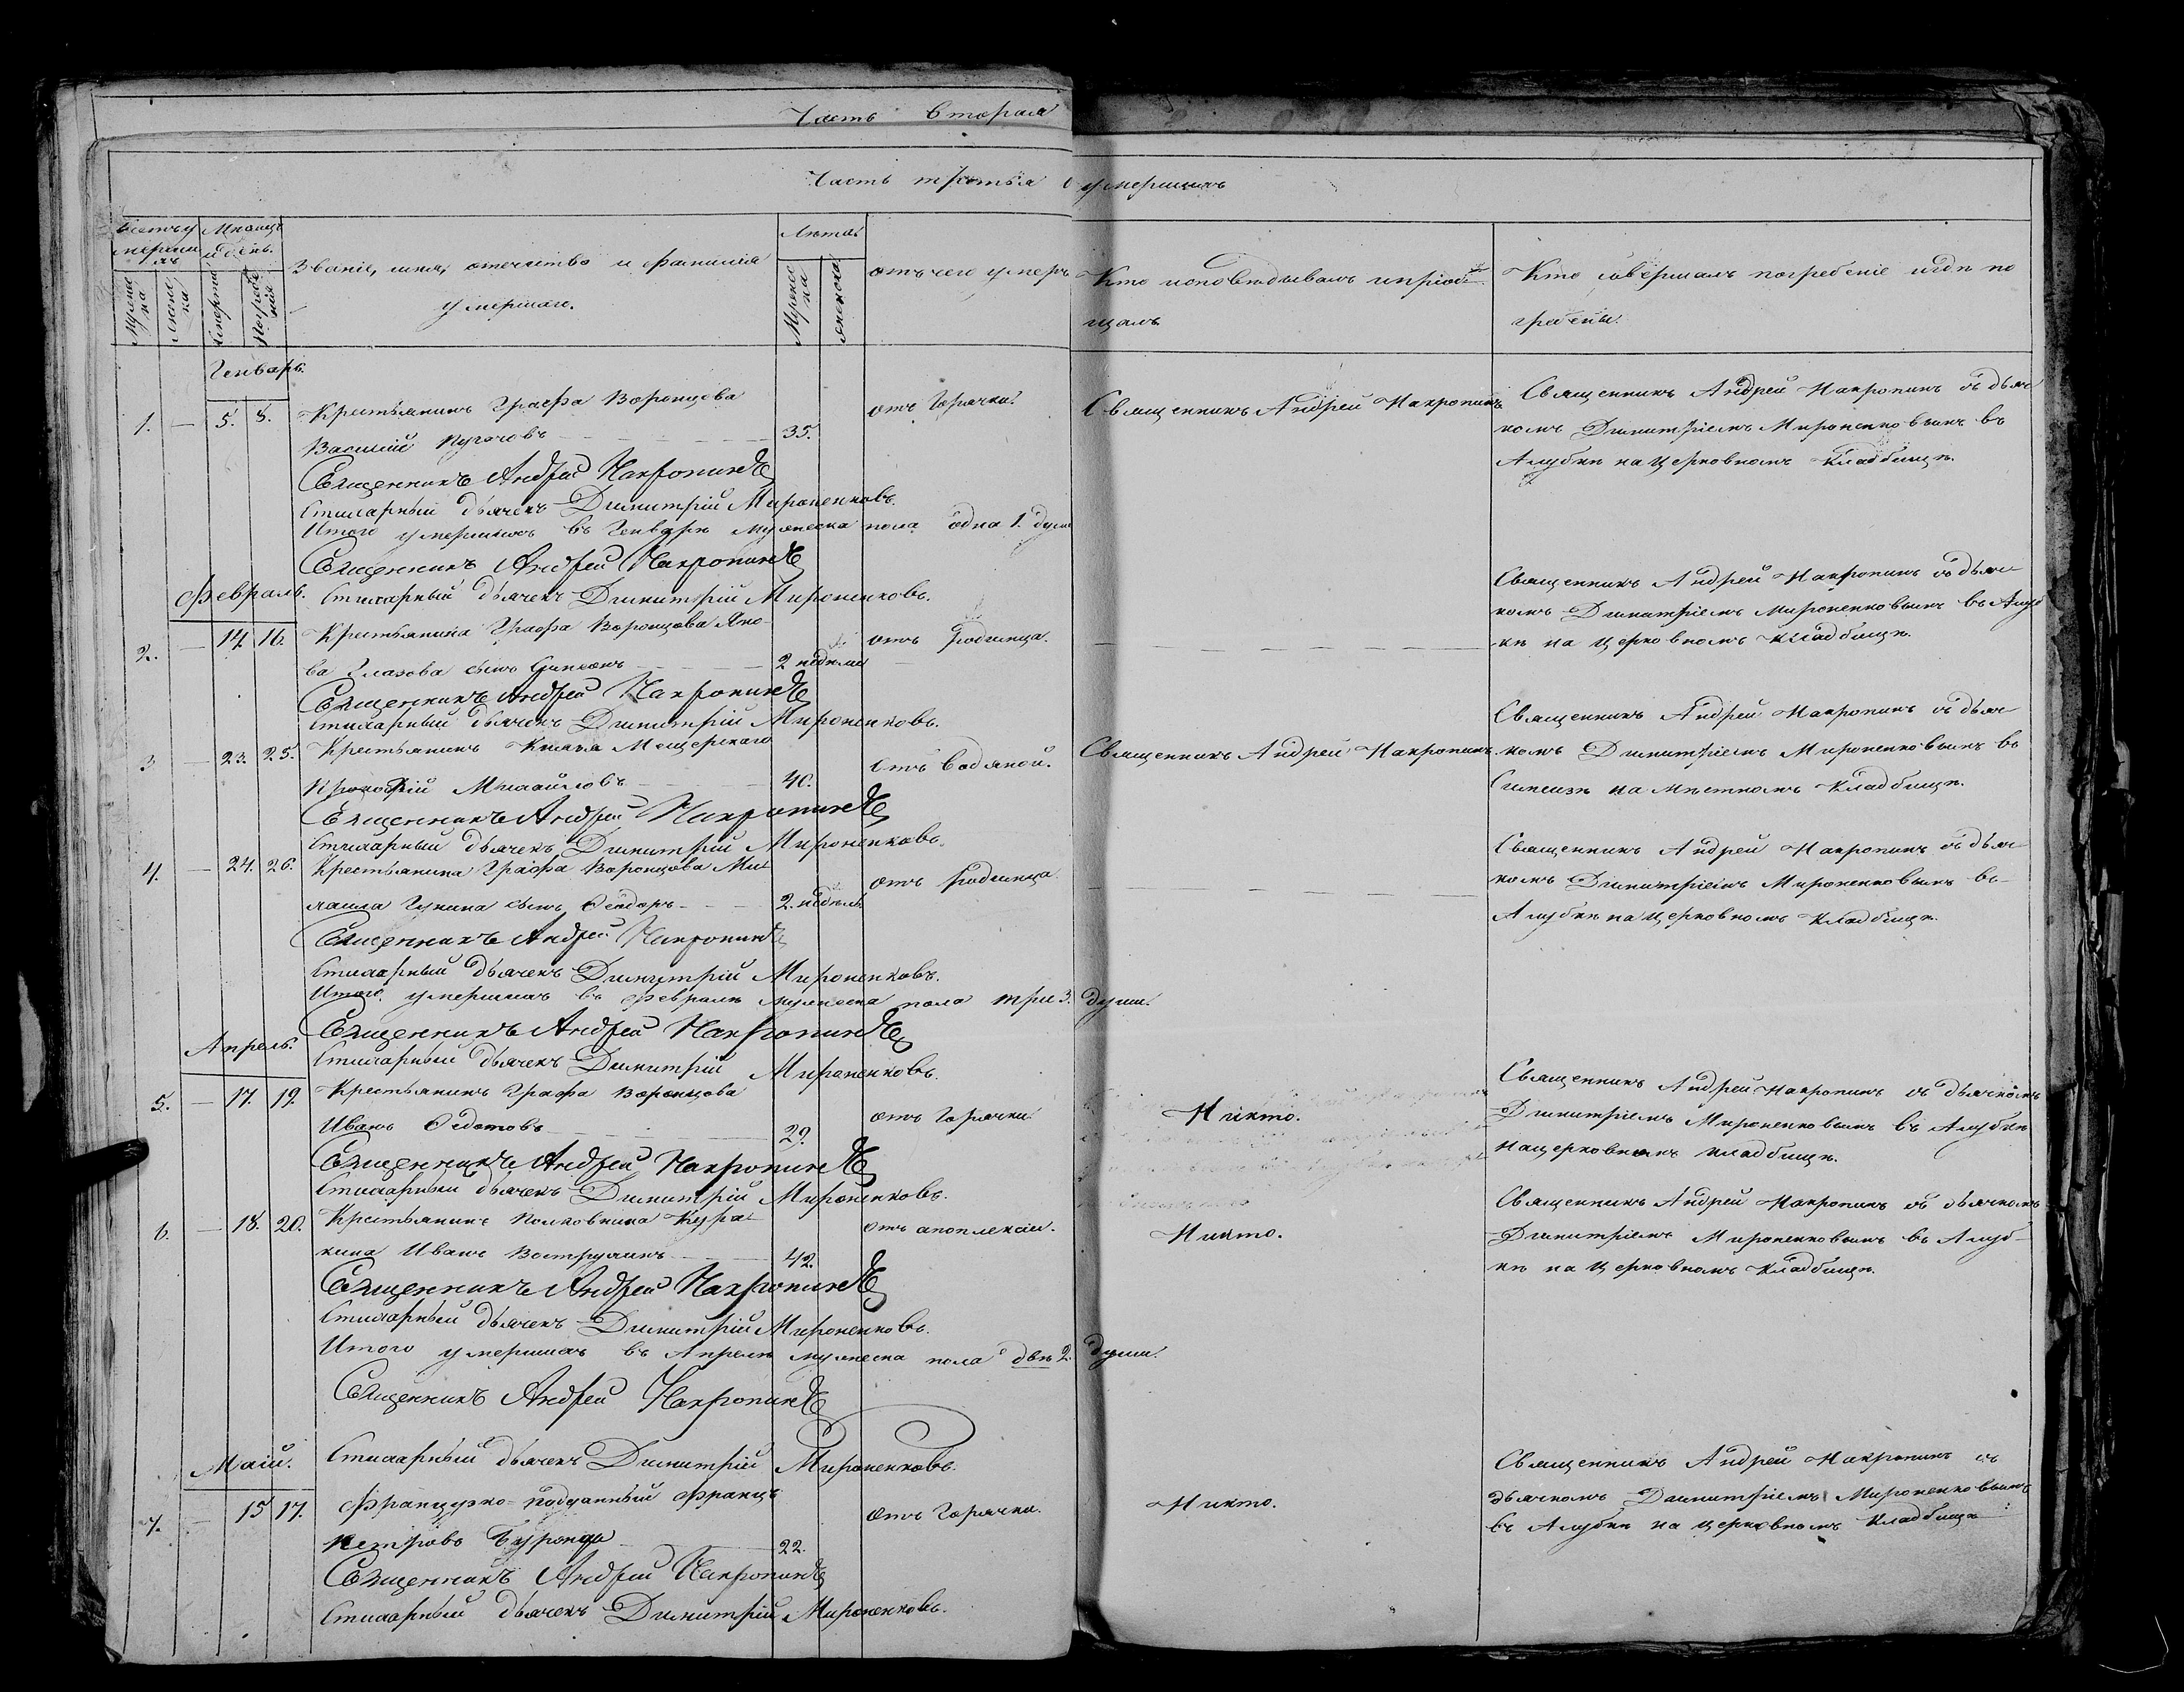 Часть Вторая
Часть третья о умершихъ
Счетъ умершихъ
Мѣсяцъ и день.
Мужеска
Женска
Смерти
Погребенія
Званіе, имя, отечество и фамилія
умершаго.
Лѣта
Мужеска
Женска
отъ чего умеръ
Кто исповѣдывалъ и пріоб-
щалъ
Кто совершалъ погребеніе и гдѣ по
гребены.
Генварь.
1. — 5. 8. Крестьянинъ Графа Воронцова
Василій 35.
отъ Горячки.
Священникъ Андрей Накропинъ
Священникъ Андрей Накропинъ съ дьяч
комъ Димитріемъ Мироненковымъ въ
Алубкѣ на Церковномъ Кладбищѣ.
Священникъ Андрей Накропинъ
Стихарный дьячекъ Димитрій Мироненковъ.
Итого умершихъ въ Генварѣ мужеска пола одна 1. душа
Священникъ Андрей Накропинъ
Февраль. Стихарный дьячекъ Димитрій Мироненковъ.
2. — 14. 16. Крестьянина Графа Воронцова Яко
ва Глазова сынъ Симеонъ 2 недѣли
отъ родимца.
Священникъ Андрей Накропинъ съ дьяч
комъ Димитріемъ Мироненковымъ въ Алуб
кѣ на церковномъ кладбищѣ.
Священникъ Андрей Накропинъ
Стихарный дьячекъ Димитрій Мироненковъ.
3 — 23. 25. Крестьянинъ Князя Мещерскаго
Прокофій Михайловъ 40.
Отъ водяной.
Священникъ Андрей Накропинъ.
Священникъ Андрей Накропинъ съ дьяч
комъ Димитріемъ Мироненковымъ въ
Симеизѣ на мѣстномъ Кладбищѣ.
Священникъ Андрей Накропинъ
Стихарный дьячекъ Димитрій Мироненковъ.
4. — 24. 26. Крестьянина Графа Воронцова Ми
хаила сынъ Ѳеодоръ 2. недѣль
отъ родимца
Священникъ Андрей Накропинъ съ дьяч
комъ Димитріемъ Мироненковымъ въ
Алубкѣ на Церковномъ Кладбищѣ.
Священникъ Андрей Накропинъ
Стихарный дьячекъ Димитрій Мироненковъ.
Итого умершихъ въ Февралѣ мужеска пола три 3. души.
Священникъ Андрей Накропинъ
Апрель. Стихарный дьячекъ Димитрій Мироненковъ.
5. — 17. 19. Крестьянинъ Графа Воронцова
Иванъ Ѳедотовъ 29.
отъ Горячки.
Никто.
Священникъ Андрей Накропинъ съ дьячкомъ
Димитріемъ Мироненковымъ въ Алубкѣ
на церковномъ кладбищѣ.
Священникъ Андрей Накропинъ
Стихарный дьячекъ Димитрій Мироненковъ.
6. — 18. 20. Крестьянинъ Полковника Кура
кина Иванъ 42.
Отъ апоплексіи.
Никто.
Священникъ Андрей Накропинъ съ дьячкомъ
Димитріемъ Мироненковымъ въ Алуб
кѣ на Церковномъ Кладбищѣ.
Священникъ Андрей Накропинъ
Стихарный дьячекъ Димитрій Мироненковъ.
Итого умершихъ въ Апрелѣ мужеска пола двѣ 2. души.
Священникъ Андрей Накропинъ
Маій. Стихарный дьячекъ Димитрій Мироненковъ.
7. — 15 17. Французко-подданный Францъ
Петровъ 22.
Отъ Горячки.
Никто.
Священникъ Андрей Накропинъ съ
дьячкомъ Димитріемъ Мироненковымъ
въ Алубкѣ на церковномъ Кладбищѣ
Священникъ Андрей Накропинъ
Стихарный дьячекъ Димитрій Мироненковъ.